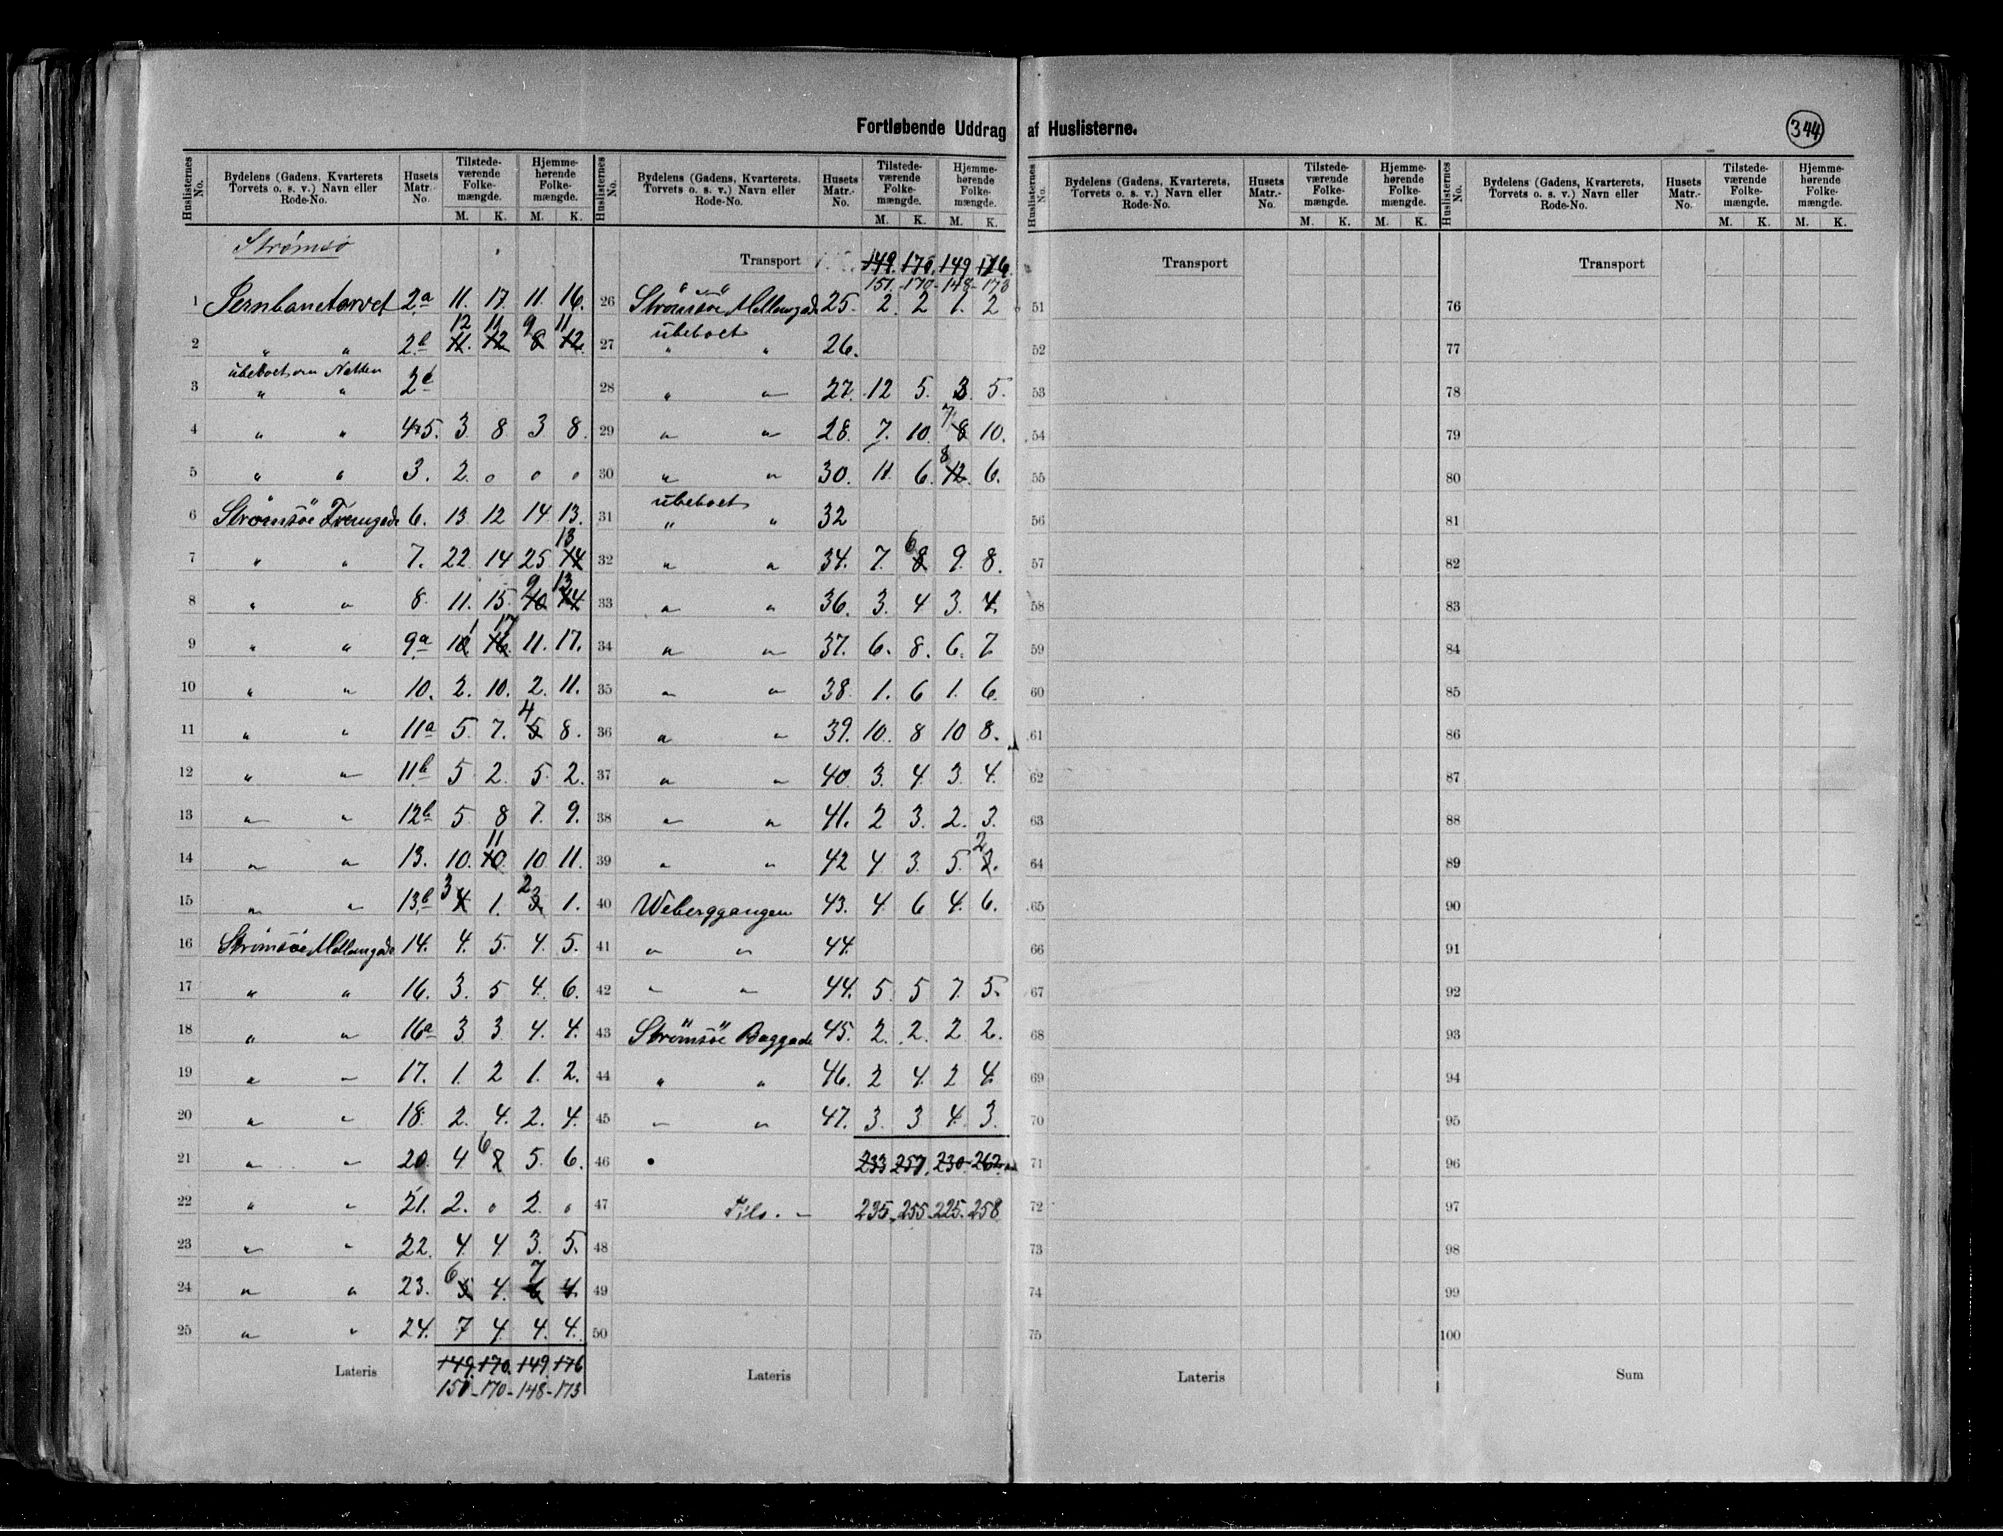 Fortløbende Uddrag af Huslisterne.
344
Huslisternes No. | Bydelens (Gadens, Kvarterets Torvets o. s. v.) Navn eller Rode-No. | Husets Matr.-No. | Tilstedeværende Folkemængde. M. K. | Hjemmehørende Folkemængde. M. K.
Strømsö
1 Jernbanetorvet 2a 11. 17. 11. 16.
2 " " 2b 12 11 9 11
3 ubeboet om Natten " "
4 " " 4&5. 3. 8. 3 8.
5 " " 3. 2. 0 0 0
6 Strömsöe Fremgade 6. 13 12 14 13.
7 " " 7. 22. 14 25 13
8 " " 8. 11. 15. 9 13
9 " " 9a 11 17 11. 17.
10 " " 10. 2. 10. 2. 11.
11 " " 11a 5. 7. 4 8.
12 " " 11b 5 2. 5. 2.
13 " " 12b 5. 8 7. 9.
14 " " 13. 10. 11 10 11.
15 " " 13b 3 1. 2 1.
16 Strömsöe Mellemgade 14. 4. 5. 4. 5.
17 " " 16. 3. 5 4. 6.
18 " " 16a 3 3. 4. 4.
19 " " 17. 1. 2 1. 2.
20 " " 18. 2. 4. 2. 4.
21 " " 20. 4 6 5. 6.
22 " " 21. 2. 0 2. 0
23 " " 22. 4. 4 3. 5.
24 " " 23. 6 4. 7 4.
25 " " 24. 7 4. 4. 4.
Lateris 149. 170. 149. 176
151 - 170 - 148 - 173
Transport 149. 170. 149 176.
151. - 170 - 148 - 173
26 Strömsöe Mellemgade 25. 2. 2 1. 2
27 ubeboet " " 26.
28 " " 27. 12 5. 3. 5.
29 " " 28. 7. 10. 7 10.
30 " " 30. 11 6. 8 6.
31 ubeboet " " 32
32 " " 34. 7. 6 9. 8.
33 " " 36. 3. 4 3. 4.
34 " " 37. 6. 8. 6. 7
35 " " 38. 1. 6 1. 6.
36 " " 39. 10. 8 10 8.
37 " " 40 3. 4. 3. 4.
38 " " 41. 2 3. 2. 3.
39 " " 42 4 3. 5. 2
40 Weberggangen 43. 4. 6 4. 6.
41 " " 44.
42 " " 44. 5. 5 7. 5.
43 Strömsöe Baggade 45. 2. 2. 2 2.
44 " " 46. 2 4. 2 4.
45 " " 47. 3. 3 4. 3.
46 233 257. 230. 262.
47 Tils. 235. 255. 225. 258
48
49
50
Lateris
Huslisternes No. | Bydelens (Gadens, Kvarterets, Torvets o. s. v.) Navn eller Rode-No. | Husets Matr.-No. | Tilstedeværende Folkemængde. M. K. | Hjemmehørende Folkemængde. M. K.
Transport
51
52
53
54
55
56
57
58
59
60
61
62
63
64
65
66
67
68
69
70
71
72
73
74
75
Lateris
Transport
76
77
78
79
80
81
82
83
84
85
86
87
88
89
90
91
92
93
94
95
96
97
98
99
100
Sum